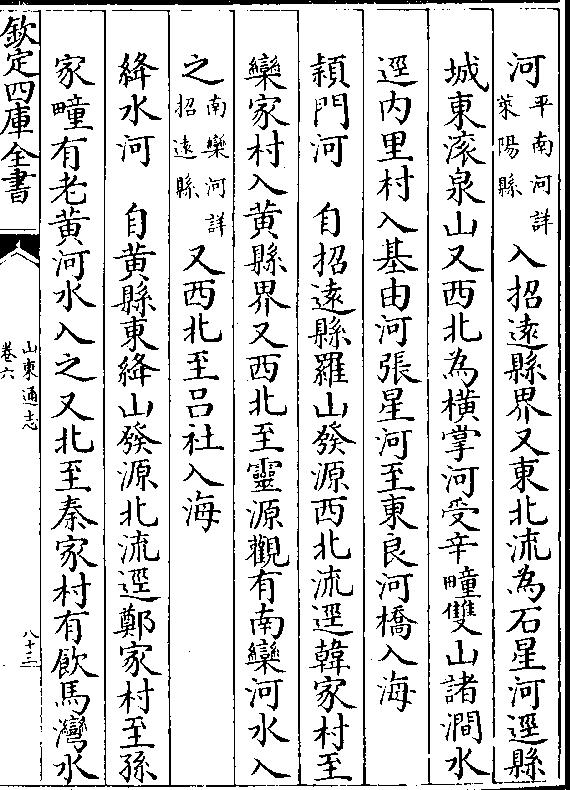 河平南河詳萊陽縣入招遠縣界又東北流為石星河逕縣
城東滚泉山又西北為橫掌河受辛疃雙山諸澗水
逕内里村入基由河張星河至東良河橋入海
頴門河　自招遠縣羅山發源西北流逕韓家村至
欒家村入黄縣界又西北至靈源觀有南欒河水入
之南欒河詳招遠縣又西北至吕社入海
絳水河　自黄縣東絳山發源北流逕鄭家村至孫
家疃有老黄河水入之又北至秦家村有飲馬灣水
欽定四庫全書
山東通志
卷六
八十三